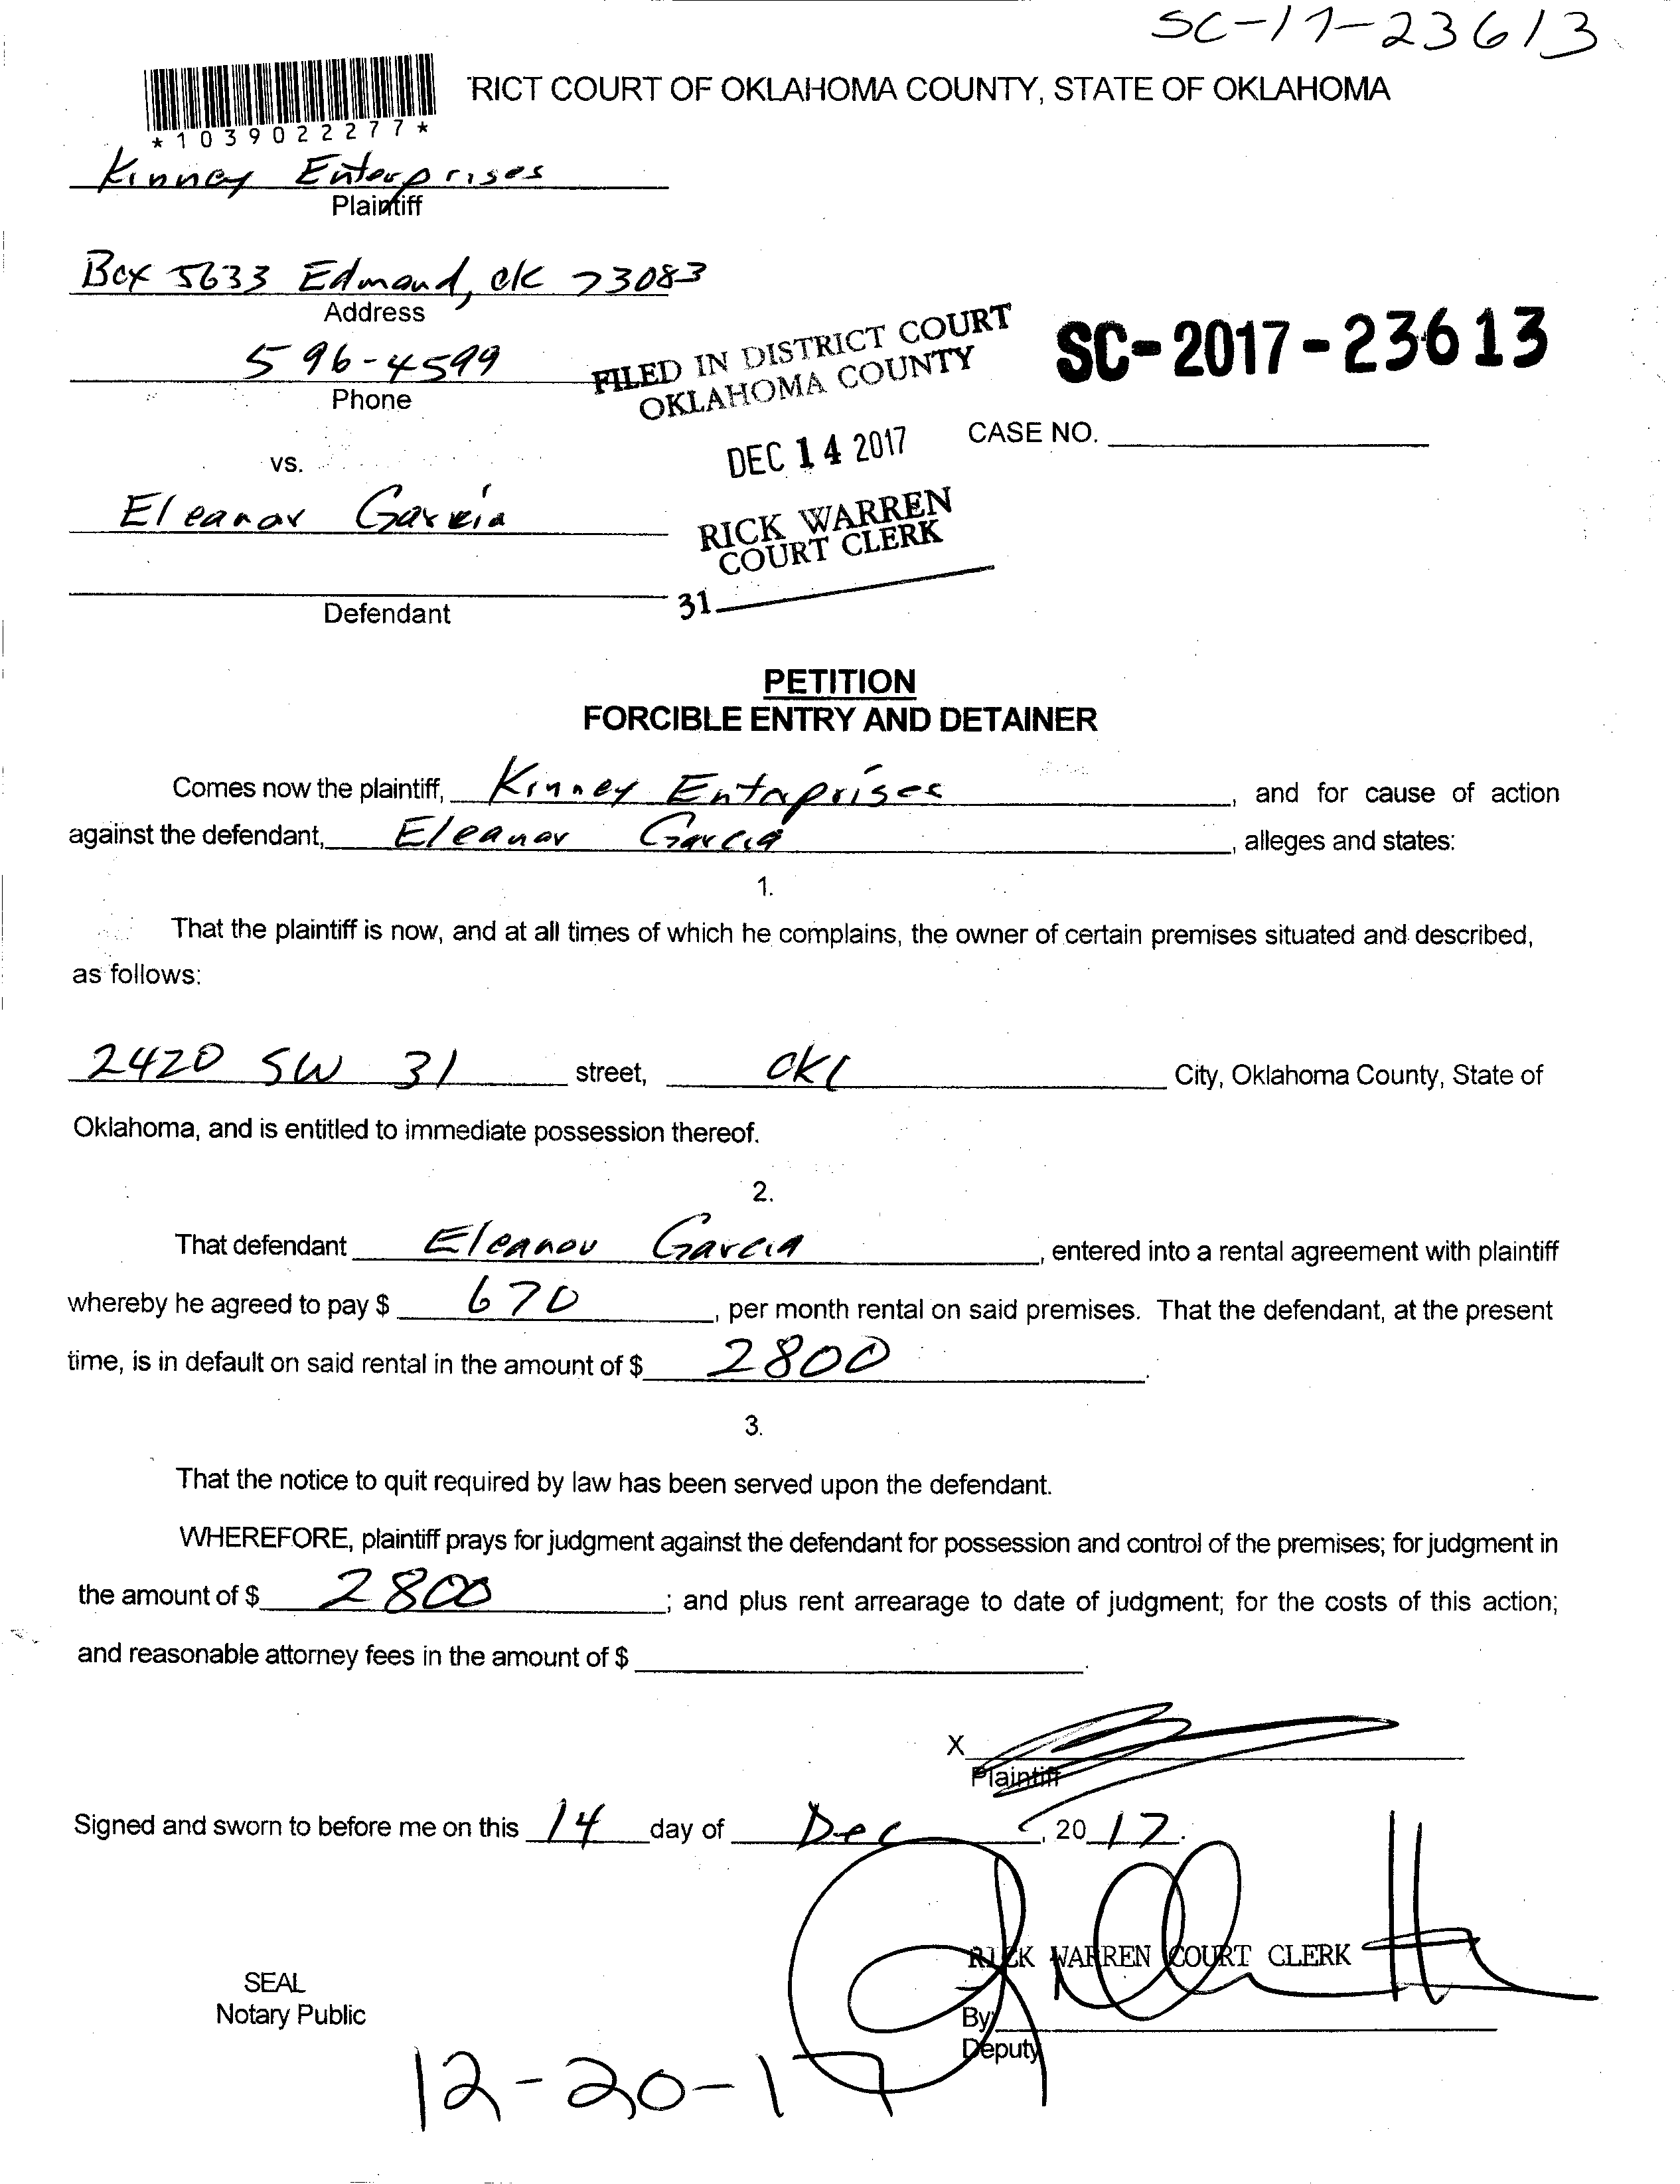 SC-17-23613
RICT COURT OF OKLAHOMA COUNTY, STATE OF OKLAHOMA
*1039022277*
Kinney Enterprises
Plaintiff
Box 5633 Edmond, ok 73083
Address
596-4599
Phone
FILED IN DISTRICT COURT
OKLAHOMA COUNTY
SC-2017-23613
DEC 14 2017
CASE NO.
vs.
Eleanor Garcia
RICK WARREN
COURT CLERK
31
Defendant
PETITION
FORCIBLE ENTRY AND DETAINER
Comes now the plaintiff, Kinney Enterprises, and for cause of action
against the defendant, Eleanor Garcia, alleges and states:
1.
That the plaintiff is now, and at all times of which he complains, the owner of certain premises situated and described,
as follows:
2420 SW 31 street, OKC City, Oklahoma County, State of
Oklahoma, and is entitled to immediate possession thereof.
2.
That defendant Eleanor Garcia, entered into a rental agreement with plaintiff
whereby he agreed to pay $ 670, per month rental on said premises. That the defendant, at the present
time, is in default on said rental in the amount of $ 2800.
3.
That the notice to quit required by law has been served upon the defendant.
WHEREFORE, plaintiff prays for judgment against the defendant for possession and control of the premises; for judgment in
the amount of $ 2800; and plus rent arrearage to date of judgment; for the costs of this action;
and reasonable attorney fees in the amount of $ .
X
Plaintiff
Signed and sworn to before me on this 14 day of Dec, 2017.
RICK WARREN COURT CLERK
SEAL
Notary Public
By:
Deputy
12-20-17